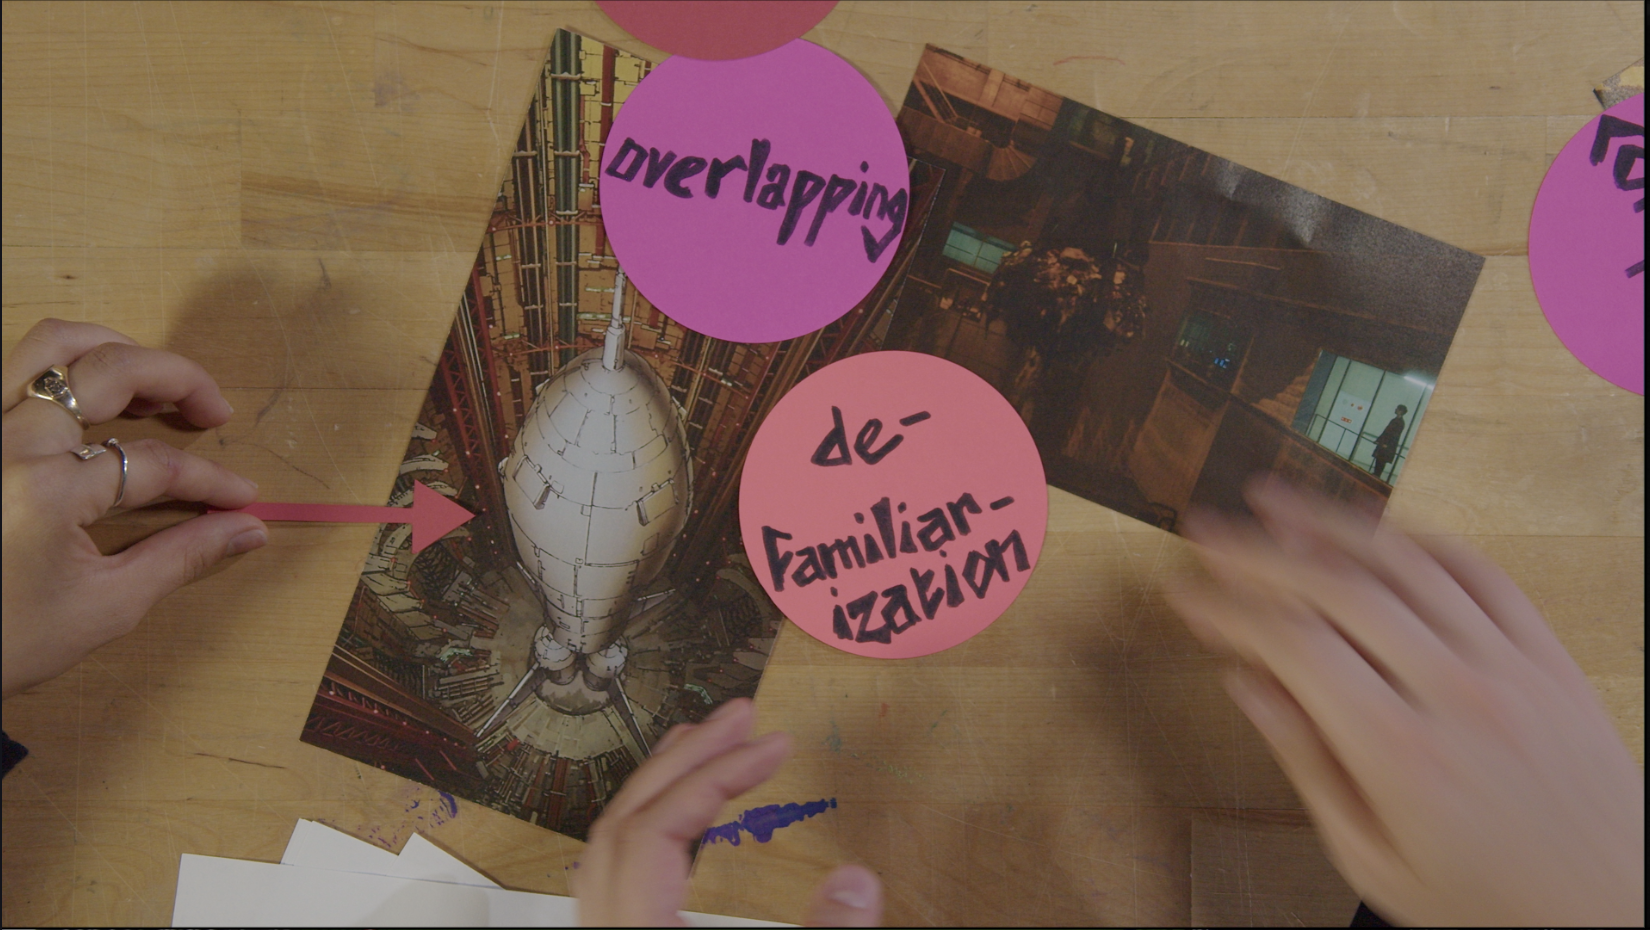 overlapping
de-
familiar-
ization